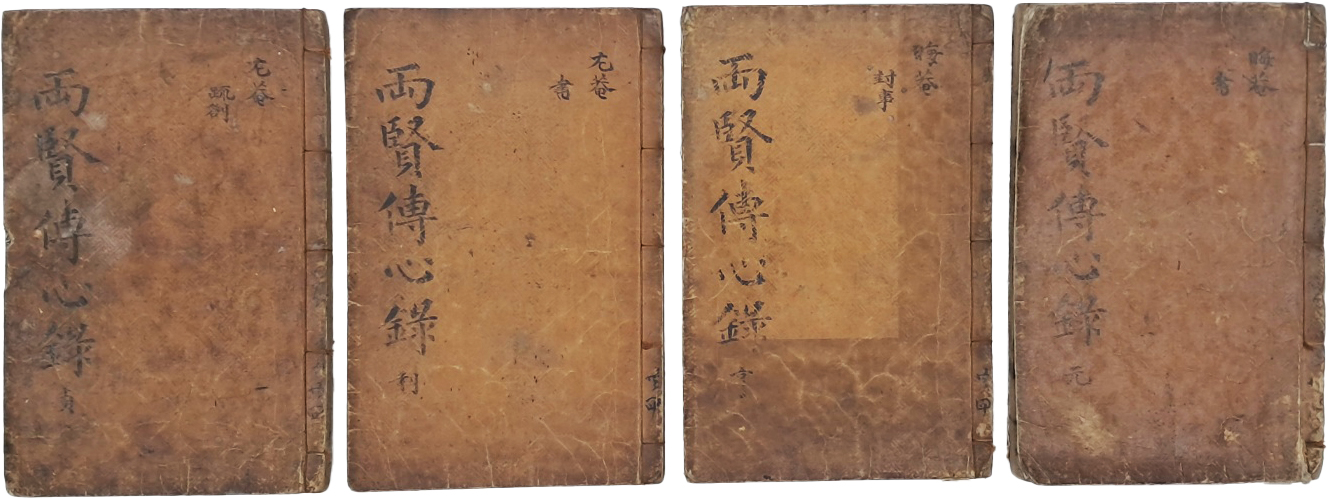 晦菴
書
両賢傳心錄 元
晦菴
封事
両賢傳心錄 亨
尤菴
書
両賢傳心錄 利
尤菴
疏劄
両賢傳心錄 貞